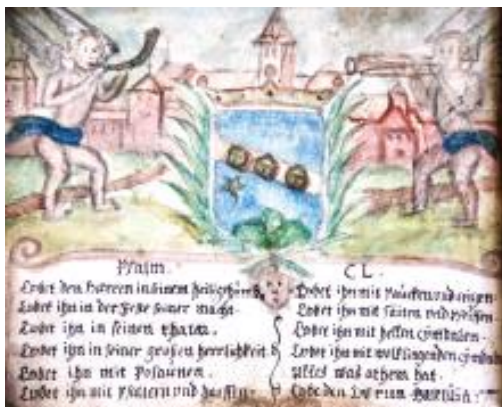 Psalm.
Lobet den Herren in seinem heiligthumb,
Lobet ihn in der Feste seiner macht.
Lobet ihn in seinen thaten.
Lobet ihn in seiner grosen herrlichkeit
Lobet ihn mit Posaunen.
Lobet ihn mit Psaltern und harffen
CL.
Lobet ihn mit Paucken und reigen
Lobet ihn mit saiten und Pfeiffen
Lobet ihn mit hellen cÿmbalen.
Lobet ihn mit wolklingenden cÿmbalen
Alles was athem hat.
Lobe den Herrn